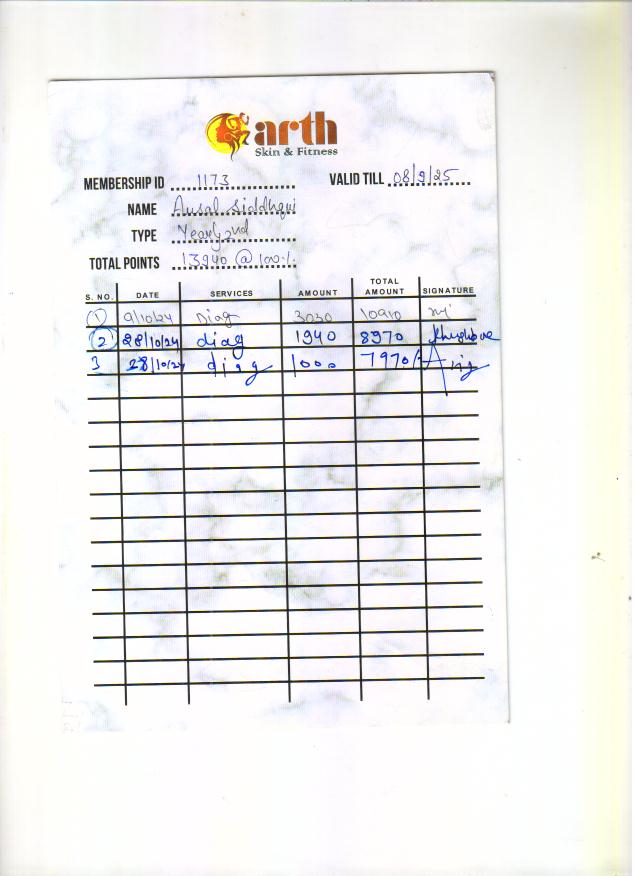 arth
Skin & Fitness
MEMBERSHIP ID 1173 VALID TILL 08/9/25
NAME Ausal Siddhqui
TYPE Yearly 2nd
TOTAL POINTS 13940 @ 100%
S. NO. DATE SERVICES AMOUNT TOTAL AMOUNT SIGNATURE
1 9/10/24 Diag 3030 10910
2 28/10/24 diag 1940 8970 Khushboe
3 28/10/24 diag 1000 7970/-